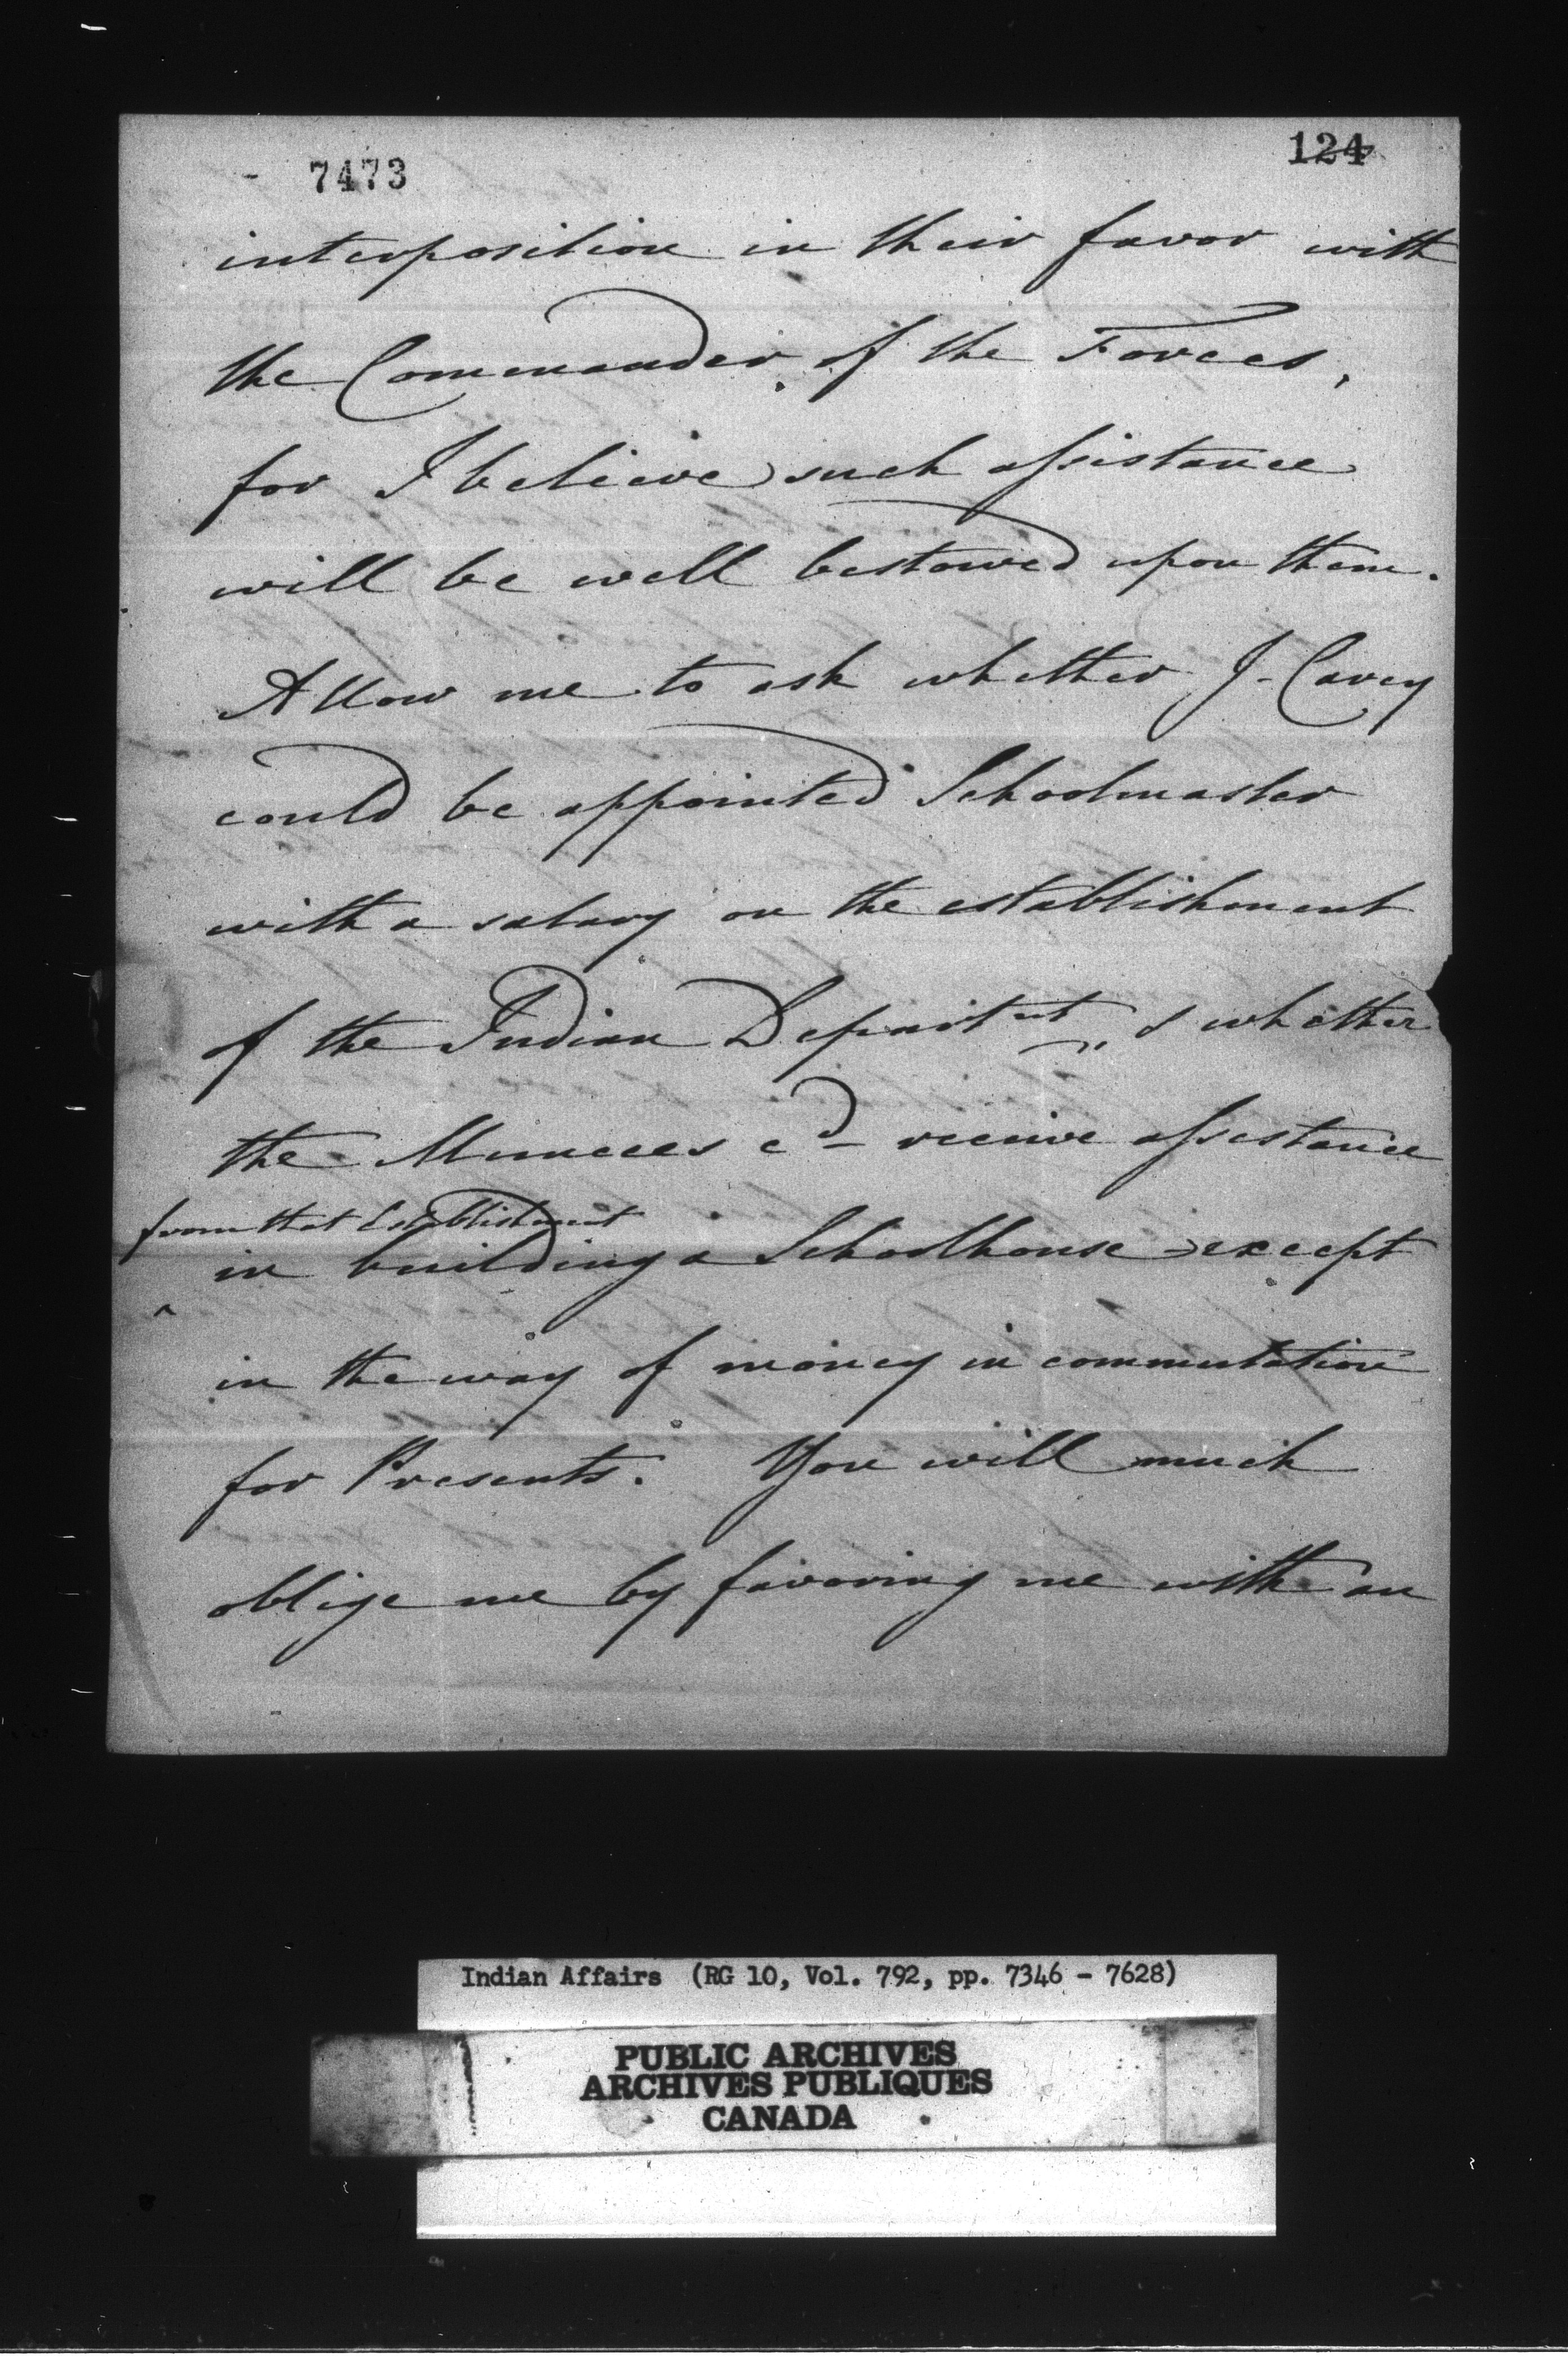 7473
124
interposition in their favor with
the Commander of the Forces,
for I believe such assistance
will be well bestowed upon them.
Allow me to ask whether J. Carey
could be appointed Schoolmaster
with a salary on the establishment
of the Indian Departmt & whether
the Muncees cd receive assistance
from that Establishment
^ in building a Schoolhouse except
in the way of money in commutation
for Presents. You will much
oblige me by favoring me with an
Indian Affairs (RG 10, Vol. 792, pp. 7346 - 7628)
PUBLIC ARCHIVES
ARCHIVES PUBLIQUES
CANADA